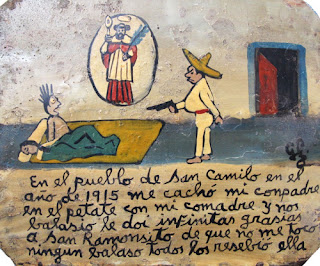 En el pueblo de San Camilo en el
año de 1915 me cachó mi conpadre
en el petate con mi comadre y nos
balasio le doi infinitas grasias
a San Ramonsito de que no me toco
ningun balaso todos los resebió ella